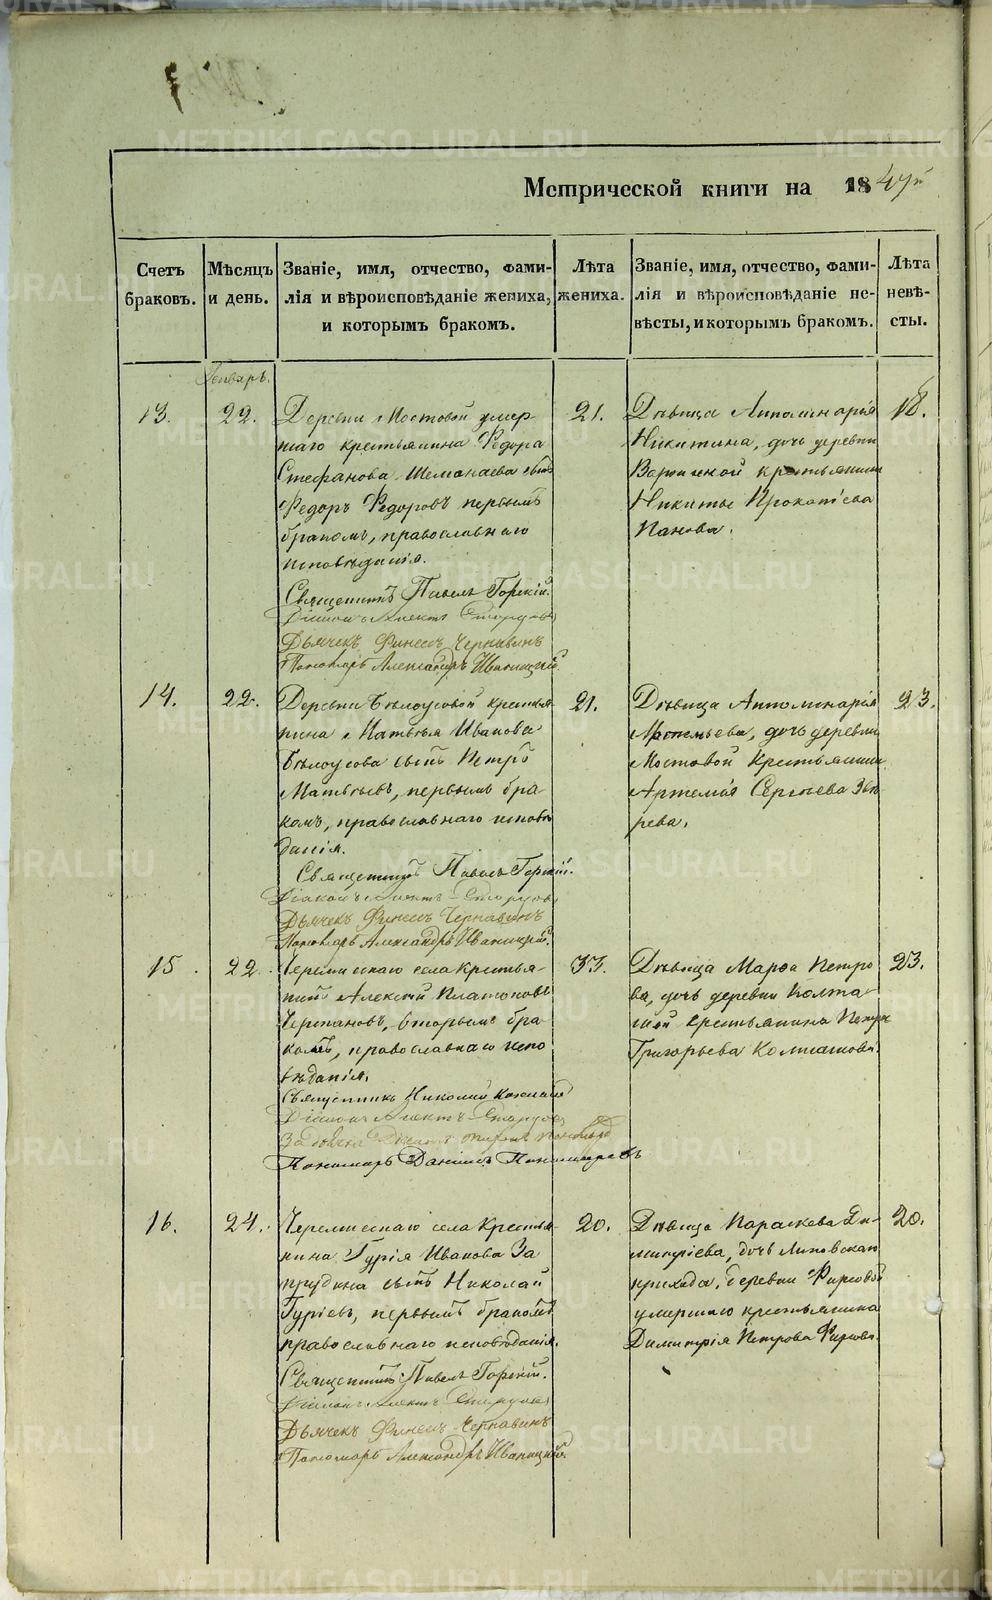 Метрической книги на 1847й
Счетъ браковъ.
Мѣсяцъ и день.
Званіе, имя, отчество, фами-
лія и вѣроисповѣданіе жениха,
и которымъ бракомъ.
Лѣта жениха.
Званіе, имя, отчество, фами-
лія и вѣроисповѣданіе не-
вѣсты, и которымъ бракомъ.
Лѣта невѣ-
сты.
Генварь.
13.
22.
Деревни Мостовой умер-
шаго крестьянина Ѳедора
Стефанова Шеманаева сынъ
Ѳедоръ Ѳедоровъ первымъ
бракомъ, православнаго
исповѣданія.
Священникъ Павелъ Горскій.
Діаконъ
Дьячекъ Финеесъ Чернавинъ
Пономарь Александръ Иваницкій.
21.
Дѣвица Аполинарія
Никитина, дочь деревни
крестьянина
Никиты Прокопіева
Панова.
18.
14.
22.
Деревни Бѣлоусовой крестья-
нина Матвѣя Иванова
Бѣлоусова сынъ Петръ
Матвѣевъ, первымъ бра-
комъ, православнаго исповѣ-
данія.
Священникъ Павелъ Горскій.
Діаконъ
Дьячекъ Финеесъ Чернавинъ
Пономарь Александръ Иваницкій.
21.
Дѣвица Апполинарія
Артемьева, дочь деревни
Мостовой крестьянина
Артемія Сергѣева Звѣ-
рева.
23.
15.
22.
Черемисскаго села крестья-
нинъ Алексѣй Платоновъ
Черепановъ, вторымъ бра-
комъ, православнаго испо-
вѣданія.
Священникъ Николай
Діаконъ
Пономарь Даніилъ Пономаревъ
33.
Дѣвица Марѳа Петро-
ва, дочь деревни Колта-
шей крестьянина Петра
Григорьева Колташова.
23.
16.
24.
Черемисскаго села крестья-
нина Гурія Иванова За
прудина сынъ Николай
Гуріевъ, первымъ бракомъ,
православнаго исповѣданія.
Священникъ Павелъ Горскій.
Діаконъ
Дьячекъ Финеесъ Чернавинъ
Пономарь Александръ Иваницкій.
20.
Дѣвица Параскева Ди-
митріева, дочь Липовскаго
прихода, деревни Фирсовой
умершаго крестьянина
Димитрія Петрова Фирсова.
20.
METRIKI.GASO-URAL.RU